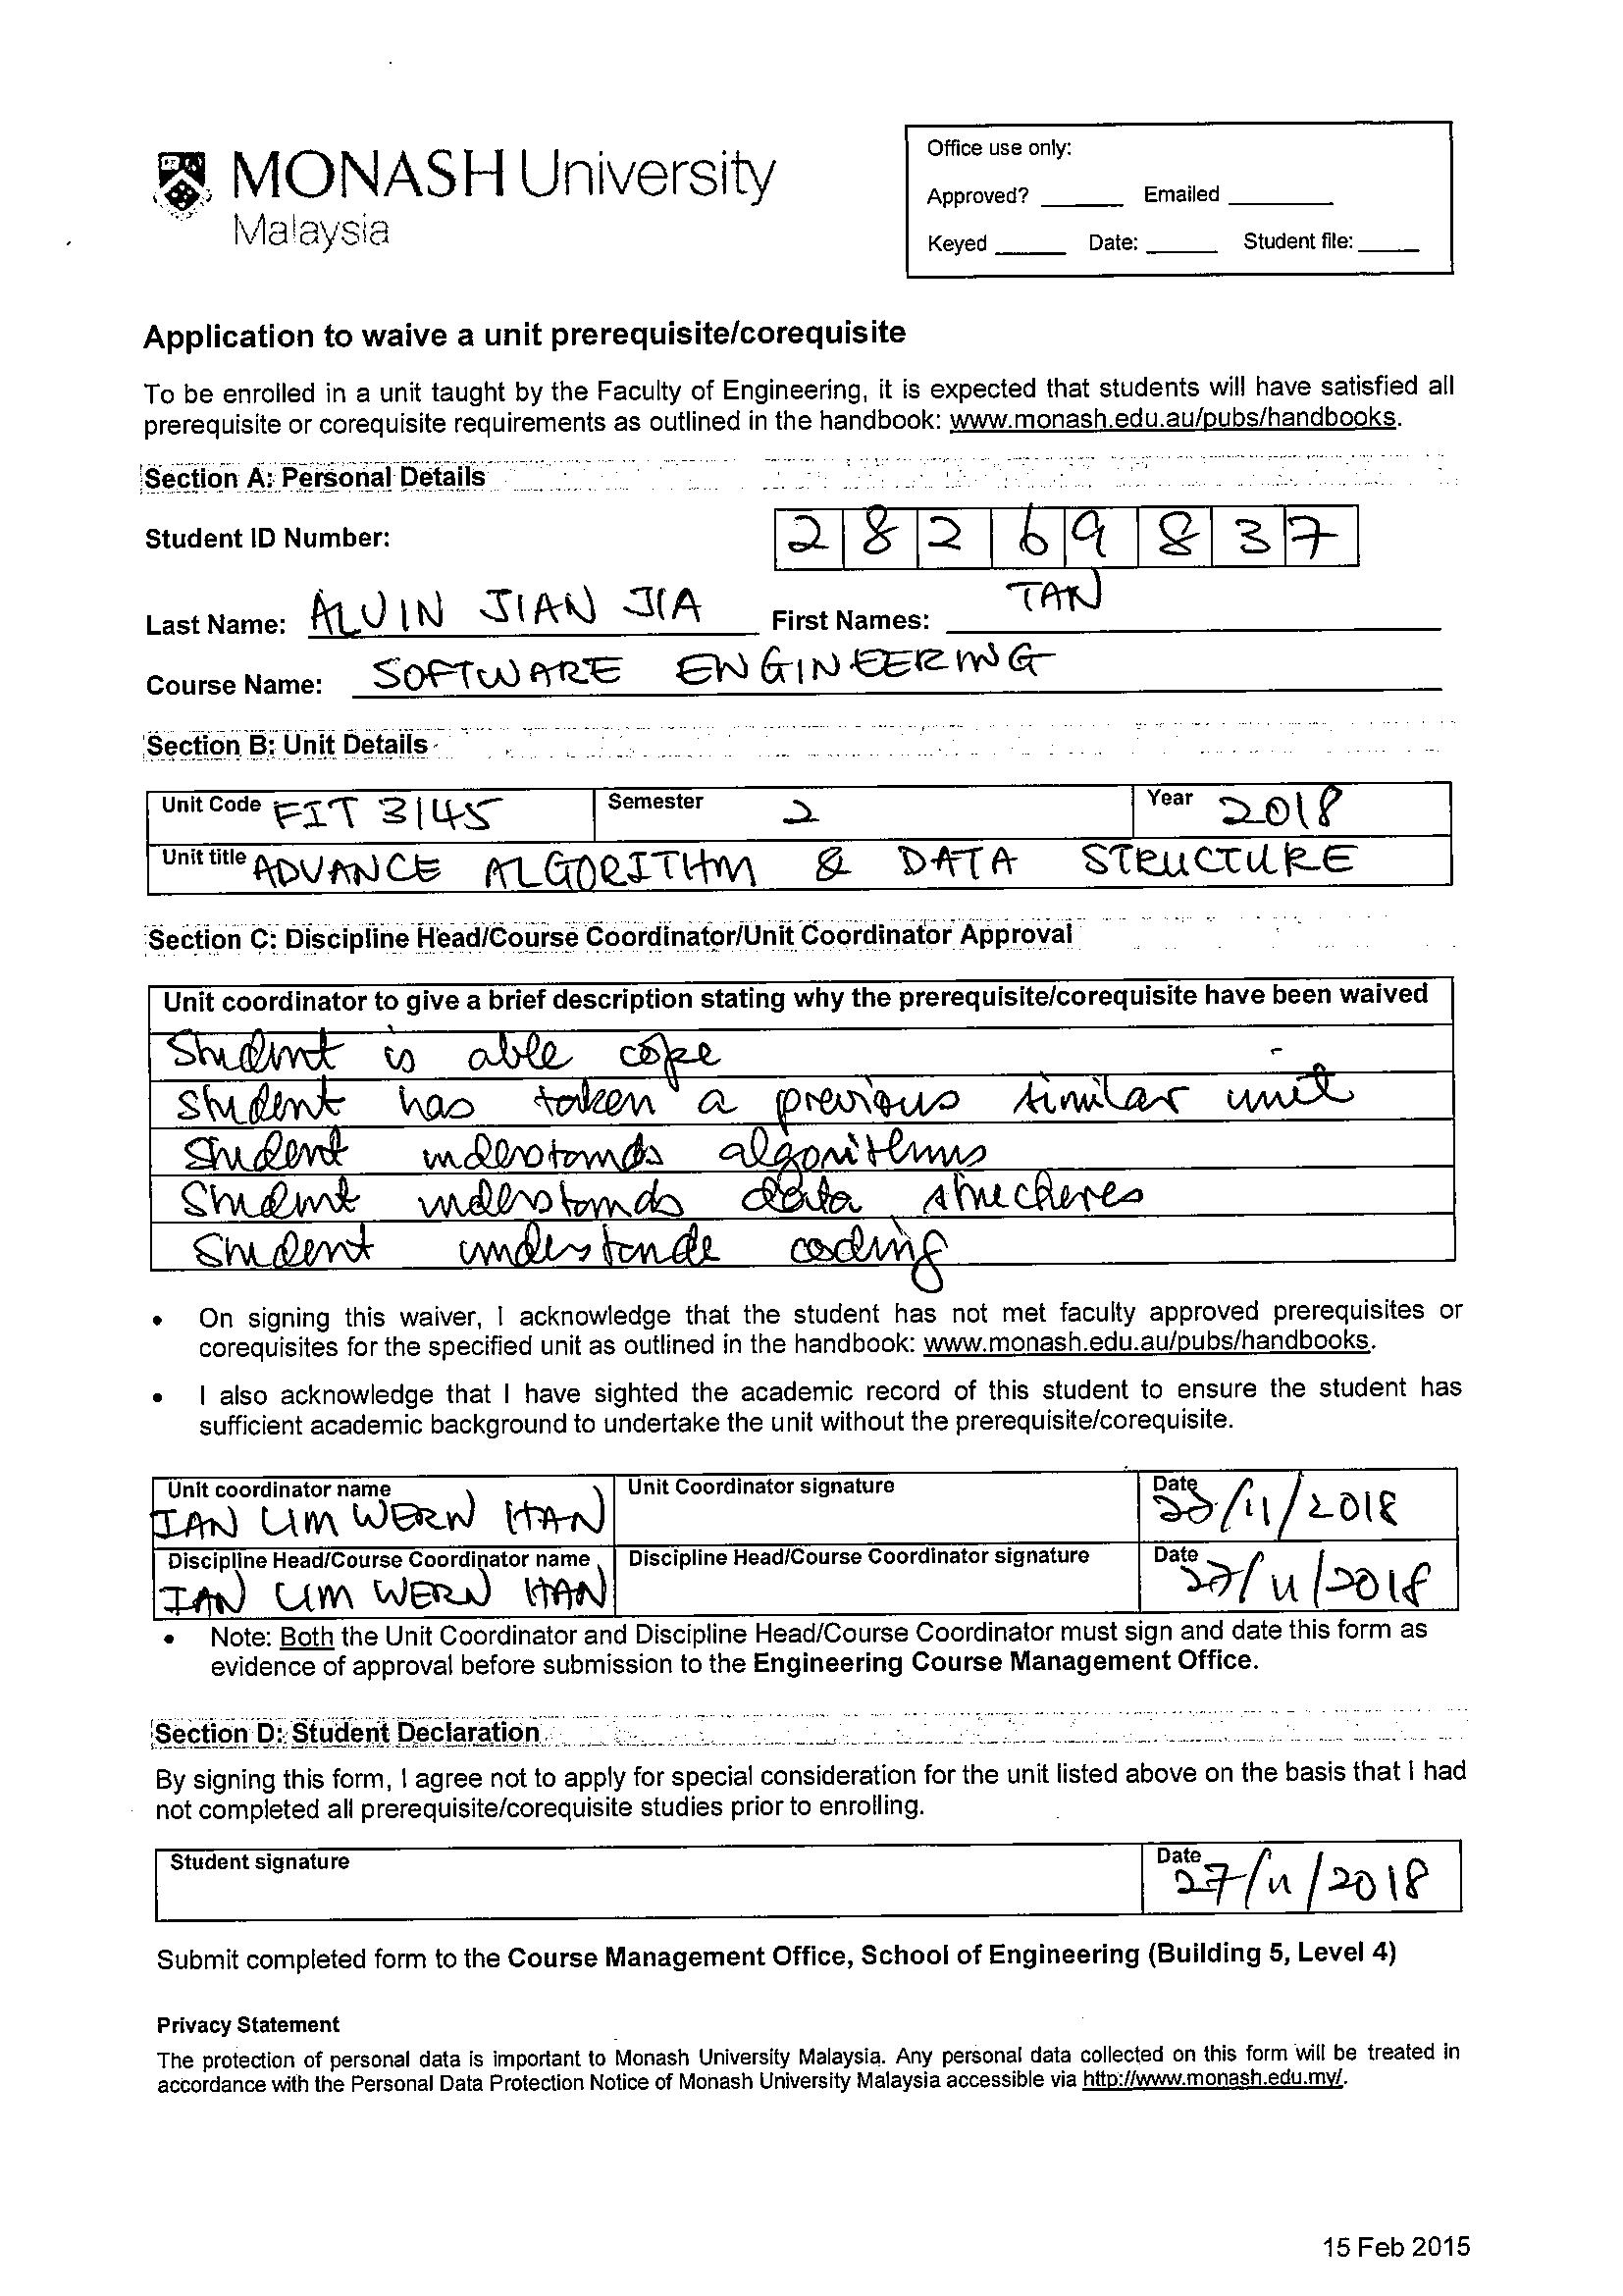 MONASH University
Malaysia
Office use only:
Approved? ______ Emailed ________
Keyed _____ Date: _____ Student file: ____
Application to waive a unit prerequisite/corequisite
To be enrolled in a unit taught by the Faculty of Engineering, it is expected that students will have satisfied all
prerequisite or corequisite requirements as outlined in the handbook: www.monash.edu.au/pubs/handbooks.
Section A: Personal Details
Student ID Number: 2 8 2 6 9 8 3 7
Last Name: ALVIN JIAN JIA First Names: TAN
Course Name: SOFTWARE ENGINEERING
Section B: Unit Details
Unit Code FIT 3145 Semester 2 Year 2018
Unit title ADVANCE ALGORITHM & DATA STRUCTURE
Section C: Discipline Head/Course Coordinator/Unit Coordinator Approval
Unit coordinator to give a brief description stating why the prerequisite/corequisite have been waived
Student is able cope
student has taken a previous similar unit
Student understands algorithms
Student understands data structures
Student understands coding
• On signing this waiver, I acknowledge that the student has not met faculty approved prerequisites or
corequisites for the specified unit as outlined in the handbook: www.monash.edu.au/pubs/handbooks.
• I also acknowledge that I have sighted the academic record of this student to ensure the student has
sufficient academic background to undertake the unit without the prerequisite/corequisite.
Unit coordinator name Unit Coordinator signature Date
IAN LIM WERN HAN /11/2018
Discipline Head/Course Coordinator name Discipline Head/Course Coordinator signature Date
IAN LIM WERN HAN 27/11/2018
• Note: Both the Unit Coordinator and Discipline Head/Course Coordinator must sign and date this form as
evidence of approval before submission to the Engineering Course Management Office.
Section D: Student Declaration
By signing this form, I agree not to apply for special consideration for the unit listed above on the basis that I had
not completed all prerequisite/corequisite studies prior to enrolling.
Student signature Date 27/11/2018
Submit completed form to the Course Management Office, School of Engineering (Building 5, Level 4)
Privacy Statement
The protection of personal data is important to Monash University Malaysia. Any personal data collected on this form will be treated in
accordance with the Personal Data Protection Notice of Monash University Malaysia accessible via http://www.monash.edu.my/.
15 Feb 2015